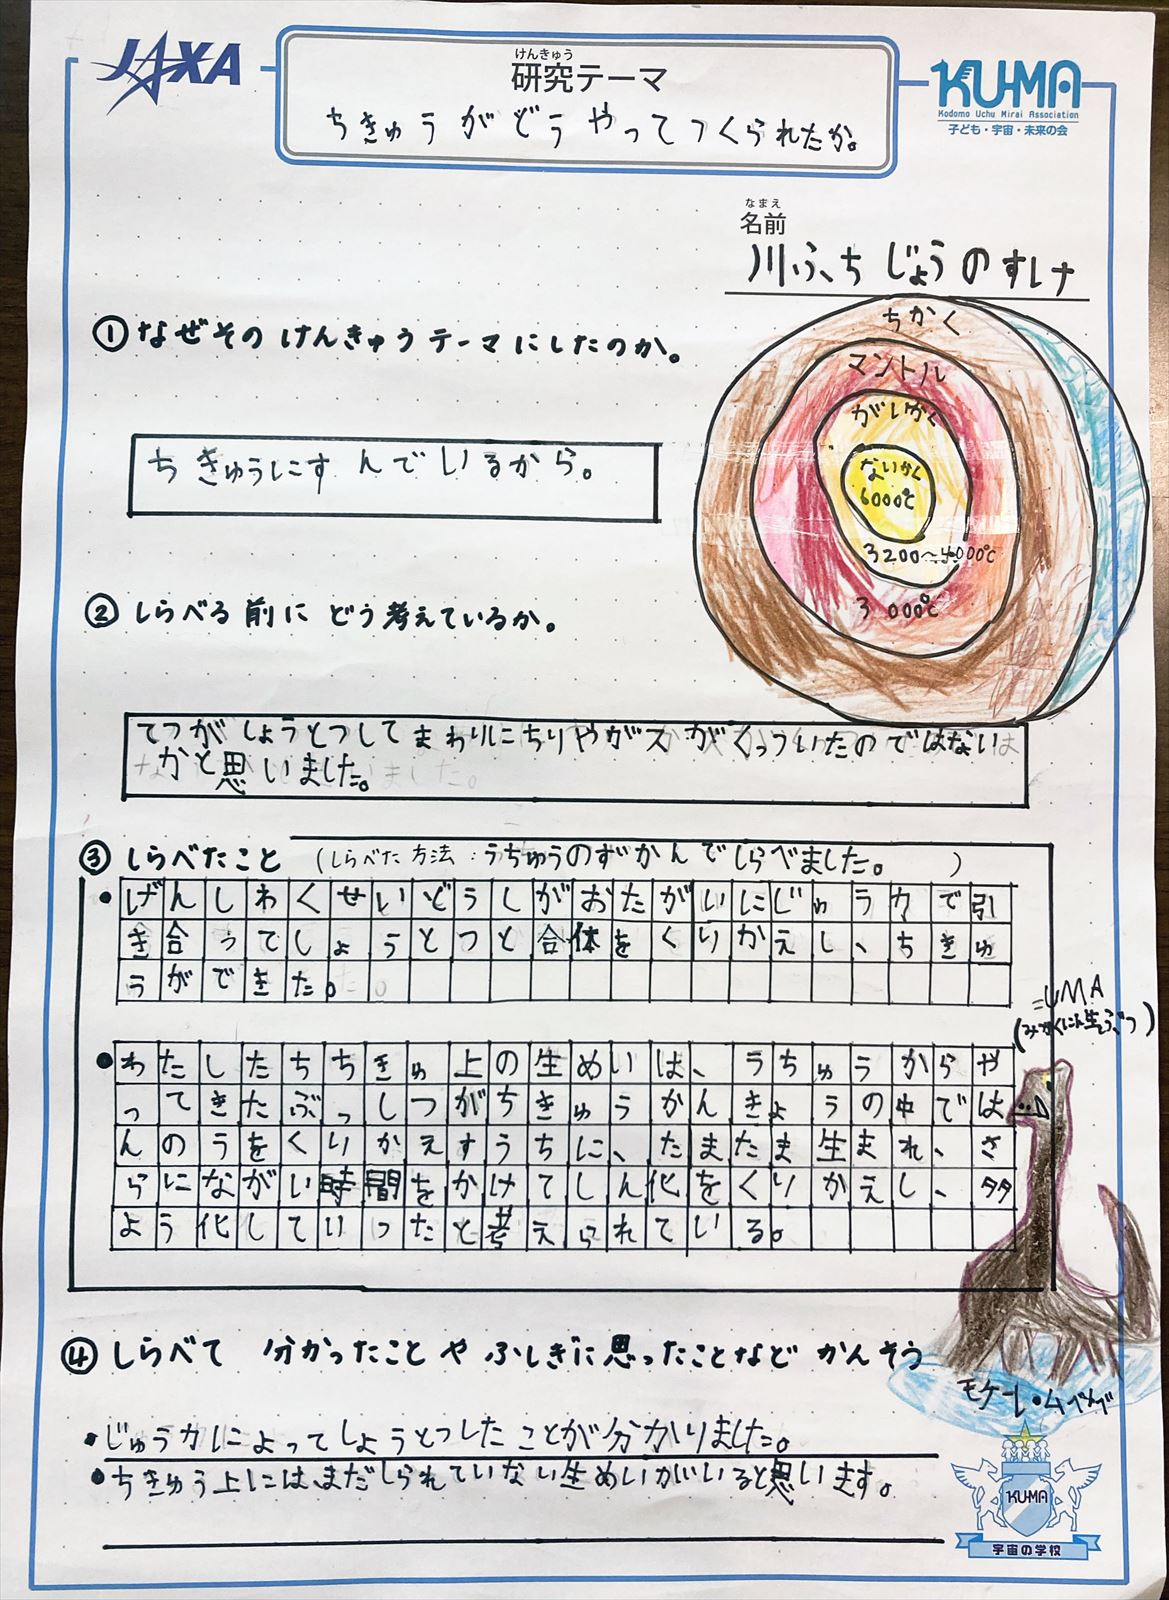 JAXA
けんきゅう
研究テーマ
ちきゅうがどうやってつくられたか。
KUMA
Kodomo Uchu Mirai Association
子ども・宇宙・未来の会
なまえ
名前
川ふち じょうのすけ
①なぜそのけんきゅうテーマにしたのか。
ちきゅうにすんでいるから。
ちかく
マントル
がいかく
ないかく
6000℃
3200〜4000℃
3000℃
②しらべる前にどう考えているか。
てつがしょうとつしてまわりにちりやガスがくっついたのではない
かと思いました。
③しらべたこと (しらべた方法:うちゅうのずかんでしらべました。)
・げんしわくせいどうしがおたがいにじゅう力で引
き合ってしょうとつと合体をくりかえし、ちきゅ
うができた。
・わたしたちちきゅ上の生めいは、うちゅうからや
ってきたぶっしつがちきゅうかんきょうの中では
んのうをくりかえすうちに、たまたま生まれ、さ
らにながい時間をかけてしん化をくりかえし、タタ
よう化していったと考えられている。
=UMA
モケーレ・ムベンベ
④しらべて 分かったことやふしぎに思ったことなど かんそう
・じゅう力によってしょうとつしたことが分かりました。
・ちきゅう上には、まだしられていない生めいがいると思います。
KUMA
宇宙の学校